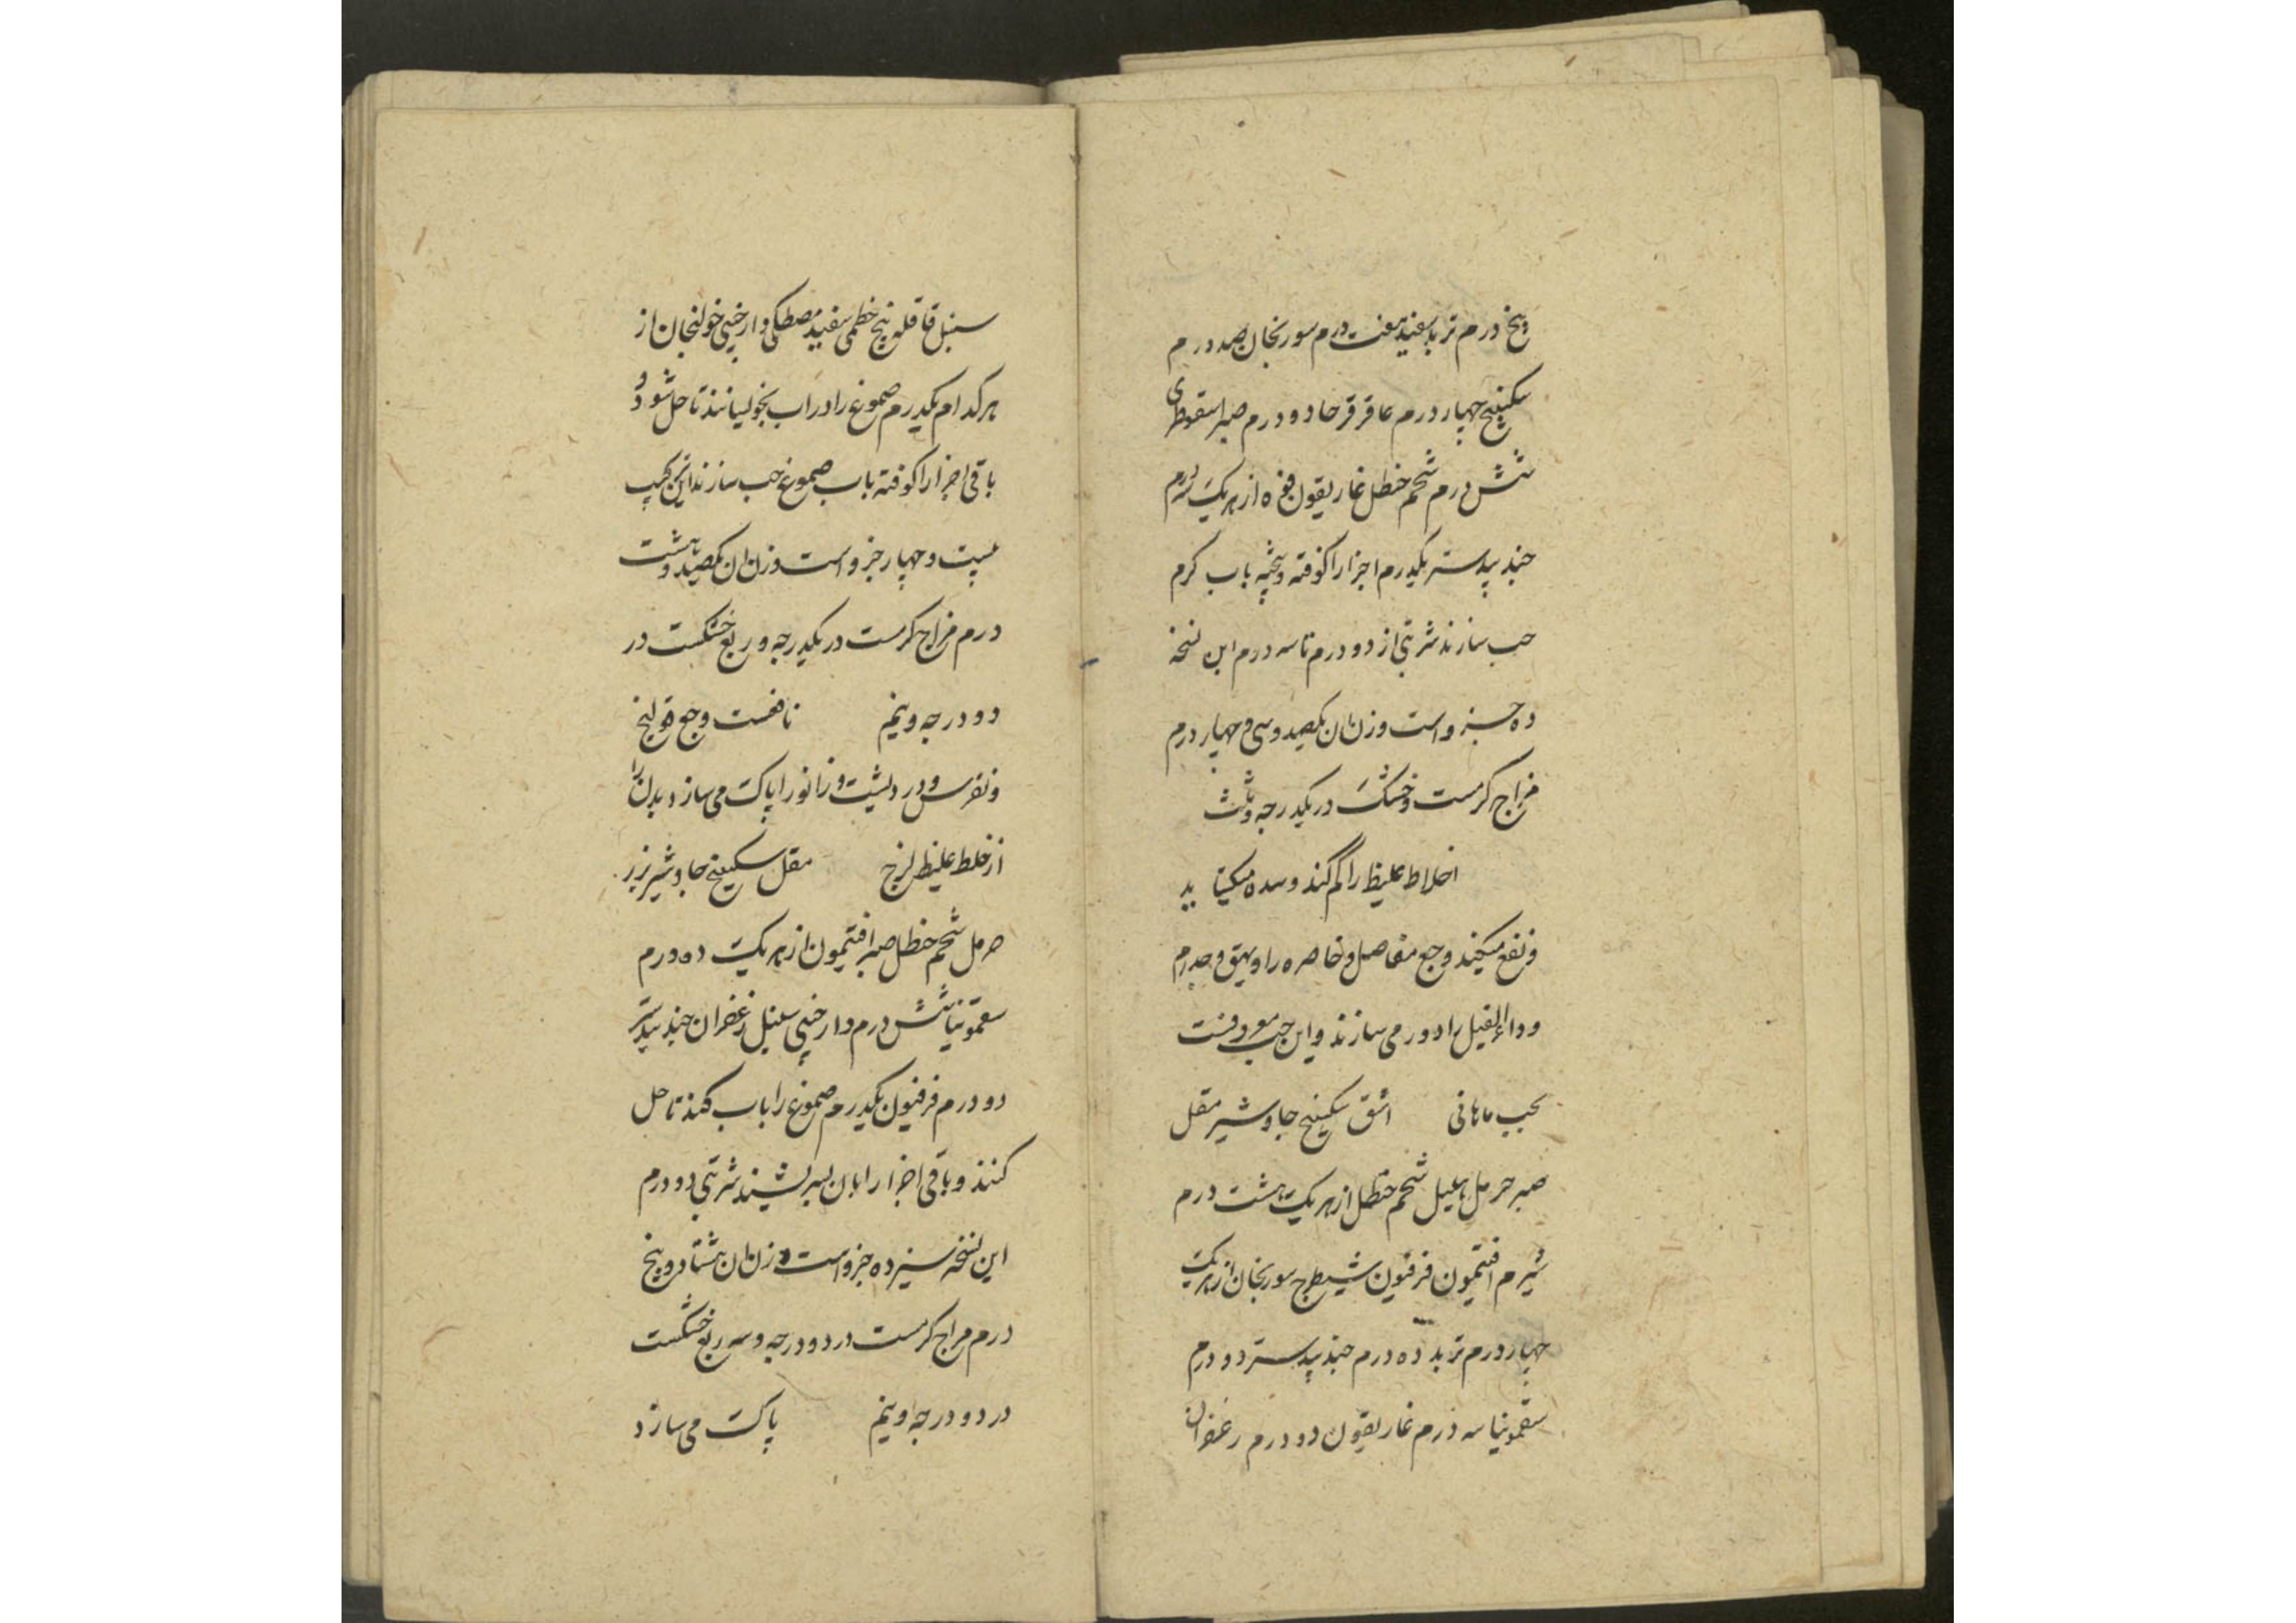 پنج درم تربد سفید هفت درم سورنجان صد درم
سکبینج چهار درم عاقرقرحا دو درم صبر اسقوطری
شش درم شحم حنظل غاریقون فوه از هر یک سه درم
جندبیدستر یکدرم اجزا را کوفته و بیخته باب کرم
حب سازند شربتی از دو درم تا سه درم این نسخه
ده جزو است وزن ان یکصد و سی و چهار درم
مزاج کرمست و خشک در یکدرجه و ثلث
اخلاط غلیظ را کم کند و سده میکشاید
و نفع میکند وجع مفاصل و خاصره را و بهق و جدرم
و داء الفیل را دور می سازند و این حب معروفست
بحب ماهانی اشق سکبینج جاوشیر مقل
صبر حرمل هلیل شحم حنظل از هر یک هشت درم
شبرم افتیمون فرفیون شیطرج سورنجان از هر یک
چهار درم تربد ده درم جندبیدستر دو درم
سقمونیا سه درم غاریقون دو درم زعفران
سنبل قاقله بیخ خطمی سفید مصطکی دارچینی خولنجان از
هر کدام یکدرم صموغ را در اب بخولیانند تا حل شود و
باقی اجزا را کوفته باب صموغ حب سازند این ترکیب
بیست و چهار جزو است وزن ان یکصد و هشت
درم مزاج کرمست در یکدرجه و ربع خشکست در
دو درجه و نیم نافعست وجع قولنج
و نقرس و درد پشت و زانو را پاک می سازد بدن را
از خلط غلیظ لزج مقل سکبینج جاوشیر بزر
حرمل شحم حنظل صبر افتیمون از هر یک ده درم
سقمونیا شش درم دارچینی سنبل زعفران جندبیدستر
دو درم فرفیون یکدرم صموغ را باب کنند تا حل
کنند و باقی اجزا را بان بسریشند شربتی دو درم
این نسخه سیزده جزو است وزن ان هشتاد و پنج
درم مزاج کرمست در دو درجه و سه ربع خشکست
در دو درجه و نیم پاک می سازد